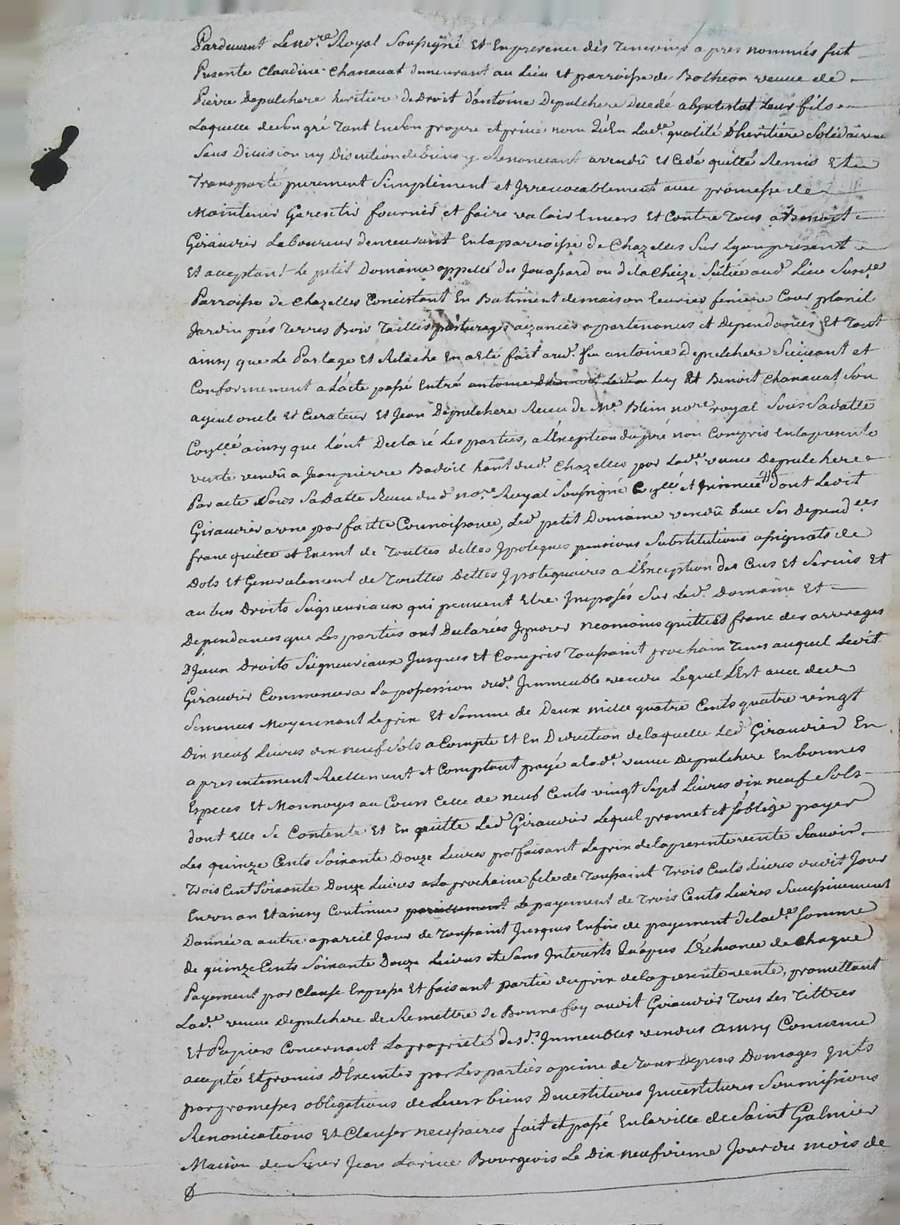 Pardevant Le no.re Royal Soussigné Et En presence des Temoins apres nommés fut
Presente Claudine Chanavat demeurant au Lieu et parroisse de Botheon veuve de
Pierre Depulchere heritiere de Droit d'antoine Depulchere decedé abintestat Leur fils
Laquelle de Son gré Tant En Son propre et privé nom qu'En Lad.e qualité d'heritiere Solidairem
Sans Division ny Discution de biens y Renoncant a vendu et Cedé quitté Remis Et
Transporté purement Simplement et Irrevocablement avec promesse de
Maintenir Garentir fournir et faire valoir Envers Et Contre Tous a Benoit
Giraudier Laboureur demeurant En la parroisse de Chazelles Sur Lyon present
Et acceptant Le petit Domaine appellé des Jouassard ou de la Cheize Sittué aud. Lieu Susd.te
Parroisse de Chazelles Concistant En Batiment de maison Ecurier feniere Cour plassil
Jardin prés Terres Bois Taillis pasturage, aizances appartenances et Dependances Et Tout
ainsy que Le Partage Et Relache En a Eté fait aud. feu antoine Depulchere Suivant et
Conformement a L'acte passé Entre antoine Luy Et Benoit Chanavat Son
ayeul oncle Et Curateur Et Jean Depulchere Receu de M.e Blein no.re royal Sous Sa datte
Conllé ainsy que L'ont Declaré Les parties, a L'Exception du pré non Compris En la presente
vente vendu a Jean pierre Badoil hant dud. Chazelles par Lad.e veuve Depulchere
Par acte Sous Sa Datte Receu dud. no.re Royal Soussigné dont Ledit
Giraudier a une parfaitte Connoissance, Led. petit Domaine vendu avec Ses Depend.ces
franc quitte et Exemt de Touttes dettes Ipoteques pensions Substitutions assignats de
Dots et Generalement de Touttes Dettes Ipotequaires a L'Exception des Cens Et Servis Et
autres Droits Seigneuriaux qui peuvent Etre Imposés Sur Led. Domaine Et
Dependances que Les parties ont Declarées Ignorer neamoins quitte et franc des arrerages
D'Iceux Droits Seigneuriaux Jusques et Compris Toussaint prochain Tems auquel Ledit
Giraudier Commencera La possession dud. Immeuble vendu Lequel L'Est avec
Semences Moyennant Le prix Et Somme de Deux mille quatre Cents quatre vingt
Dix neuf Livres dix neuf Sols a Compte Et En Deduction de Laquelle Led. Giraudier En
a presentement Reellement et Comptant payé a Lad.e veuve Depulchere En bonnes
Especes Et Monnoyes au Cours Celle de neuf Cents vingt Sept Livres dix neuf Sols
dont Elle Se Contente Et En quitte Led. Giraudier Lequel promet et S'oblige payer
Les quinze Cents Soixante Douze Livres parfaisant Le prix de la presente vente Scavoir
Trois Cent Soixante Douze Livres a La prochaine fete de Toussaint Trois Cents Livres audit Jour
En un an Et ainsy Continuer Le payement de Trois Cents Livres Sumsivement
D'année a autre a pareil Jour de Toussaint Jusques En fin de payement de Lad.e Somme
de quinze Cents Soixante Douze Livres et Sans Interets Jusques L'Echeance de Chaque
Payement par Clause Expresse Et faisant partie du prix de la presente vente, promettant
Lad.e veuve Depulchere de Remettre de Bonne foy audit Giraudier Tous Les Tittres
Et Papiers Concernant La proprieté desd. Immeubles vendus ainsy Convenu
accepté Et promis D'Executer par Les parties a peine de Tous Depens Domages Interets
par promesses obligations de Leurs biens Devestitures Investitures Soumissions
Renonciations Et Clauses necessaires fait et passé En la ville de Saint Galmier
Maison de Sieur Jean Bourgeois Le Dix neufvieme Jour du mois de